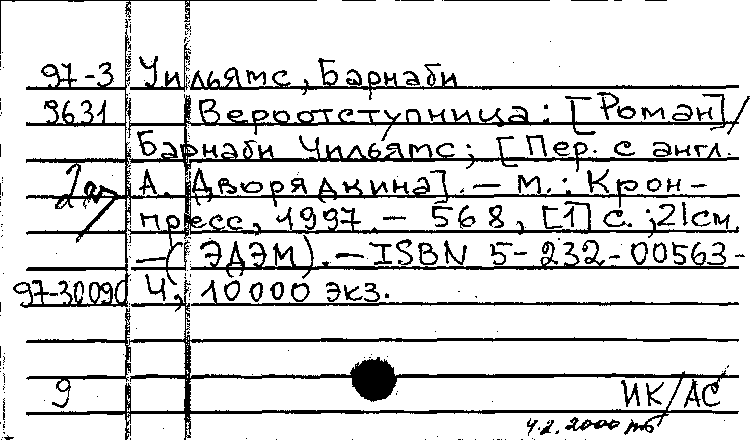 97-3 Уильямс, Барнаби
9631 Вероотступница: [Роман] /
Барнаби Уильямс; [Пер. с англ.
А. Дворядкина]. — М.: Крон-
пресс, 1997. — 568, [1] с.; 21см.
— (ЭДЭМ). — ISBN 5-232-00563-
97-30090 4; 10000 экз.
9 ИК/АС
4.2.2000